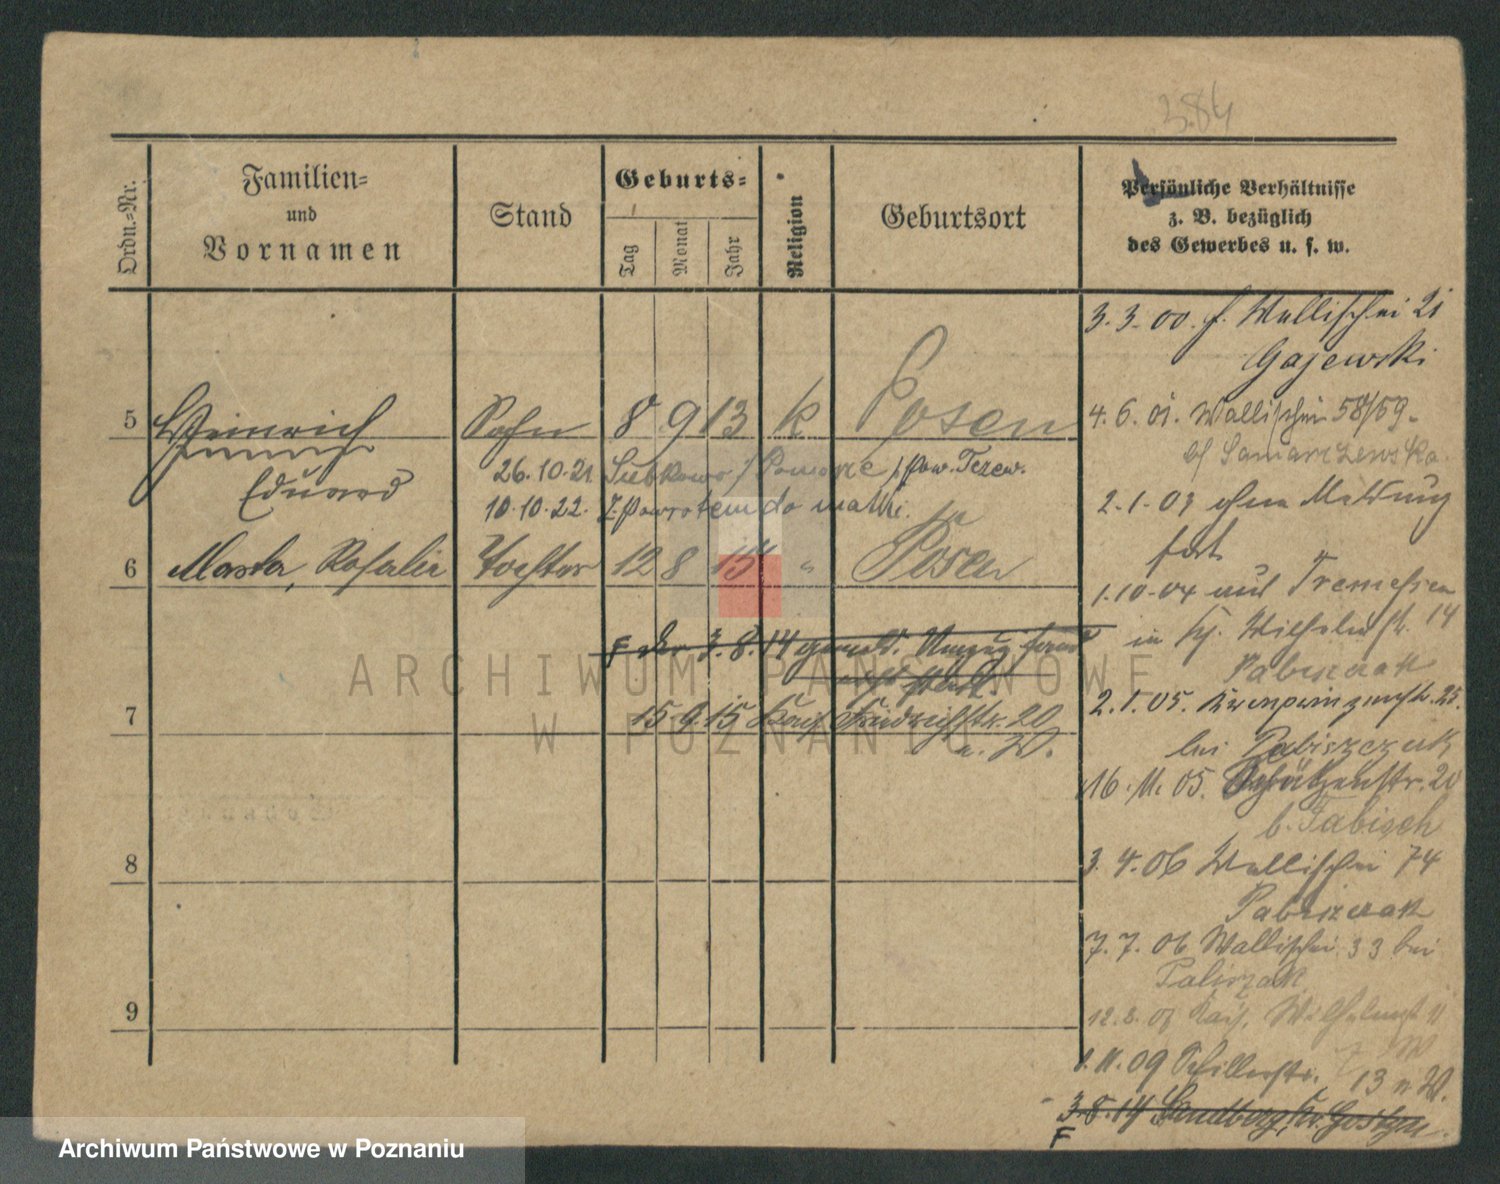 384
Ordn.=Nr.
Familien=
und
Vornamen
Stand
Geburts=
Tag
Monat
Jahr
Religion
Geburtsort
Persönliche Verhältnisse
z. B. bezüglich
des Gewerbes u. s. w.
3.3.00. f. Wallischei 21
Gajewski
5 Heinrich Sohn 8 9 13 k Posen
4.6.01. Wallischei 58/59.
b/ Samarzewska.
Eduard
26.10.21. Subkowo / Pomorze / pow. Tczew.
10.10.22. Z powrotem do matki.
2.1.03 ohne Meldung
fort
6 Rosalie Tochter 12 8 15 " Posen
1.10.04 aus Tremessen
in Wilhelmstr. 14
Pabiszczak
3.8.14 gemeld. Umzug fand
nicht statt
2.1.05. Kronprinzenstr. 25.
bei Pabiszczak
7
15.9.15 Friedrichstr. 20
n. W.
16.11.05. Schützenstr. 20
b. Fabisch
8
3.4.06 Wallischei 74
Pabiszczak
7.7.06 Wallischei 33 bei
9
Wilhelmst 11
1.11.09 Schillerstr. 13 n W.
3.8.14 Sandberg, Kr. Gostyn
F
ARCHIWUM PAŃSTWOWE
W POZNANIU
Archiwum Państwowe w Poznaniu